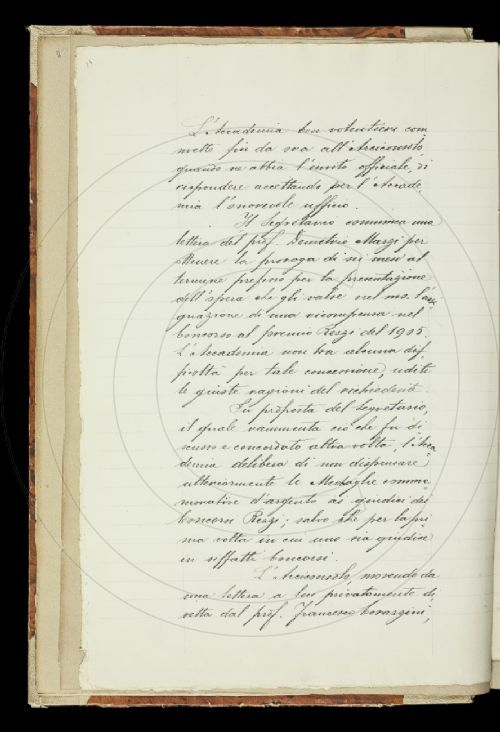 L'Accademia ben volentieri com
mette fin da ora all'Arciconsolo
quando ne abbia l'invito officiale, di
rispondere accettando per l'Accade
mia l'onorevole ufficio.
Il Segretario comunica una
lettera del prof. Demetrio Marzi per
ottenere la proroga di sei mesi al
termine prefisso per la presentazione
dell'opera che gli valse nel ms. l'as
gnazione di una ricompensa nel
Concorso al Premio Rezzi del 1905.
L'Accademia non tra alcuna dif
ficoltà per tale concessione, udite
le giuste ragioni del richiedente.
Su proposta del Segretario,
il quale rammenta ciò che fu di
scusso e concordato altra volta, l'Acca
demia delibera di non dispensare
ulteriormente le Medaglie comme
morative d'argento ai giudici dei
Concorsi Rezzi; salvo che per la pri
ma volta in cui uno sia giudice
in siffatti Concorsi.
L'Arciconsolo, movendo da
una lettera a lui privatamente di
retta dal prof. Francesco Corazzini,